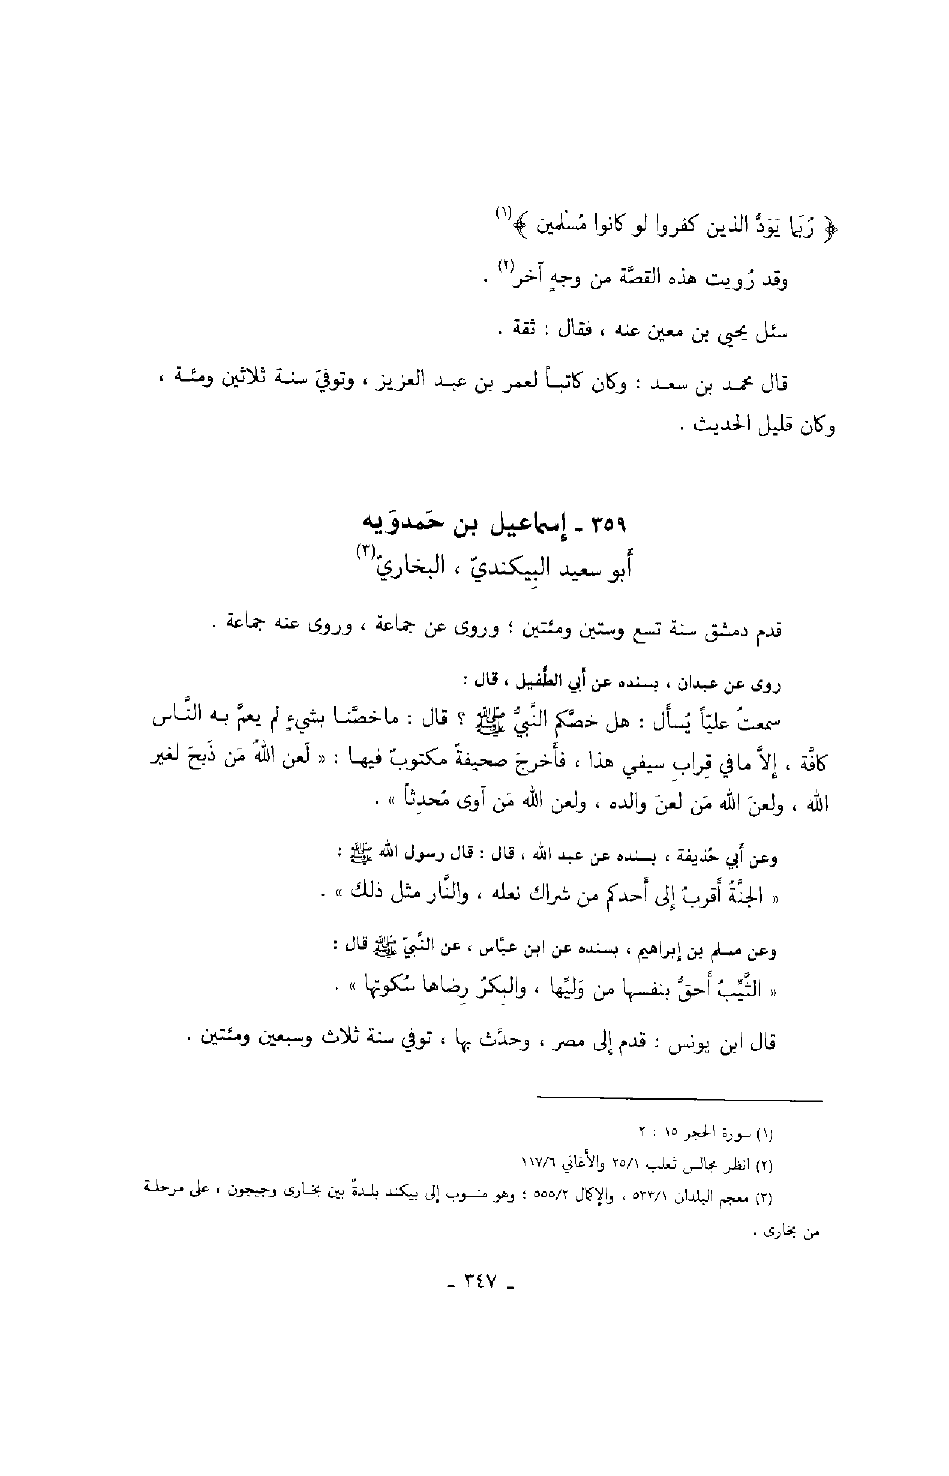 ﴿ رُبَما يَوَدُّ الذين كفروا لو كانوا مُسْلمين ﴾(١)
وقد رُويت هذه القصَّة من وجهٍ آخر(٢) .
سئل يحيى بن معين عنه ، فقال : ثقة .
قال محمد بن سعد : وكان كاتباً لعمر بن عبد العزيز ، وتوفيَ سنة ثلاثين ومئة ،
وكان قليل الحديث .
٣٥٩ ـ إسماعيل بن حَمدوَيه
أبو سعيد البِيكنديّ ، البخاريّ(٣)
قدم دمشق سنة تسع وستين ومئتين ؛ وروى عن جماعة ، وروى عنه جماعة .
روى عن عبدان ، بسنده عن أبي الطُّفيل ، قال :
سمعتُ عليّاً يُسأل : هل خصَّكم النَّبيُّ ﷺ ؟ قال : ماخصَّنا بشيءٍ لم يعمَّ به النَّاس
كافَّة ، إلاَّ مافي قِرابِ سيفي هذا ، فأخرجَ صحيفةً مكتوبٌ فيها : « لَعن اللهُ مَن ذَبحَ لغير
الله ، ولعنَ الله مَن لعنَ والده ، ولعن الله مَن آوى مُحدِثاً » .
وعن أبي حُذيفة ، بسنده عن عبد الله ، قال : قال رسول الله ﷺ :
« الجنَّةُ أقربُ إلى أحدكم من شراك نعله ، والنَّار مثل ذلك » .
وعن مسلم بن إبراهيم ، بسنده عن ابن عبَّاس ، عن النَّبيّ ﷺ قال :
« الثَّيِّبُ أحقُّ بنفسها من وَليِّها ، والبكرُ رِضاها سُكوتها » .
قال ابن يونس : قدم إلى مصر ، وحدَّث بها ، توفي سنة ثلاث وسبعين ومئتين .
(١) سورة الحجر ١٥ : ٢
(٢) انظر مجالس ثعلب ٣٥/١ والأغاني ١١٧/٦
(٣) معجم البلدان ٥٣٣/١ ، والإكمال ٥٥٥/٢ ؛ وهو منسوب إلى بيكند بلدةٌ بين بخارى وجيحون ، على مرحلة
من بخارى .
ـ ٣٤٧ ـ